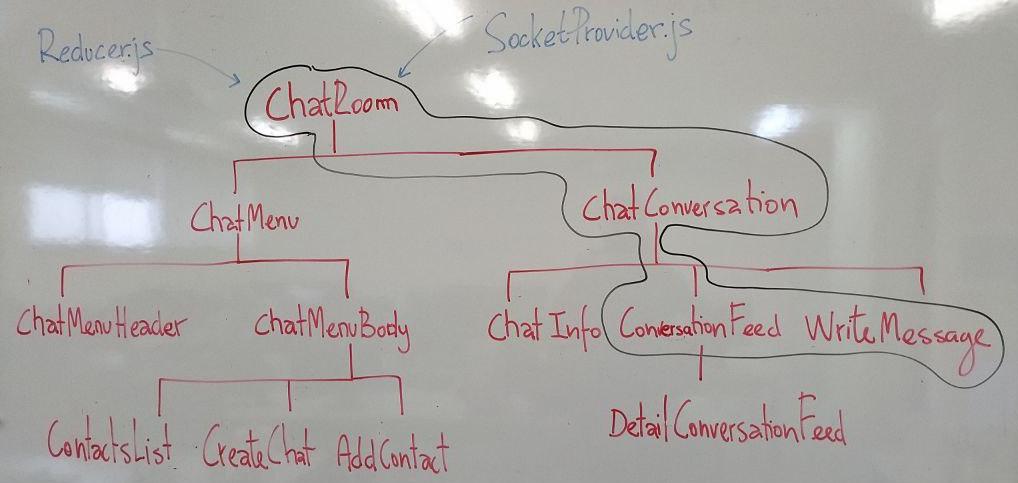 Reducer.js
SocketProvider.js
ChatRoom
ChatMenu
ChatConversation
ChatMenuHeader
ChatMenuBody
Chat Info
ConversationFeed
WriteMessage
ContactsList
CreateChat
AddContact
DetailConversationFeed